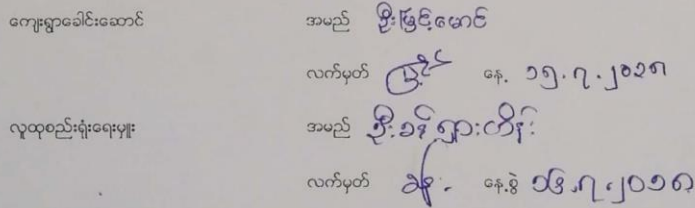 ကျေးရွာခေါင်းဆောင် အမည် ဦးမြင့်မောင်
လက်မှတ် နေ့. ၁၅.၇.၂၀၁၈
လူထုစည်းရုံးရေးမှူး အမည် ဦး
လက်မှတ် နေ့စွဲ ၁၆.၇.၂၀၁၈